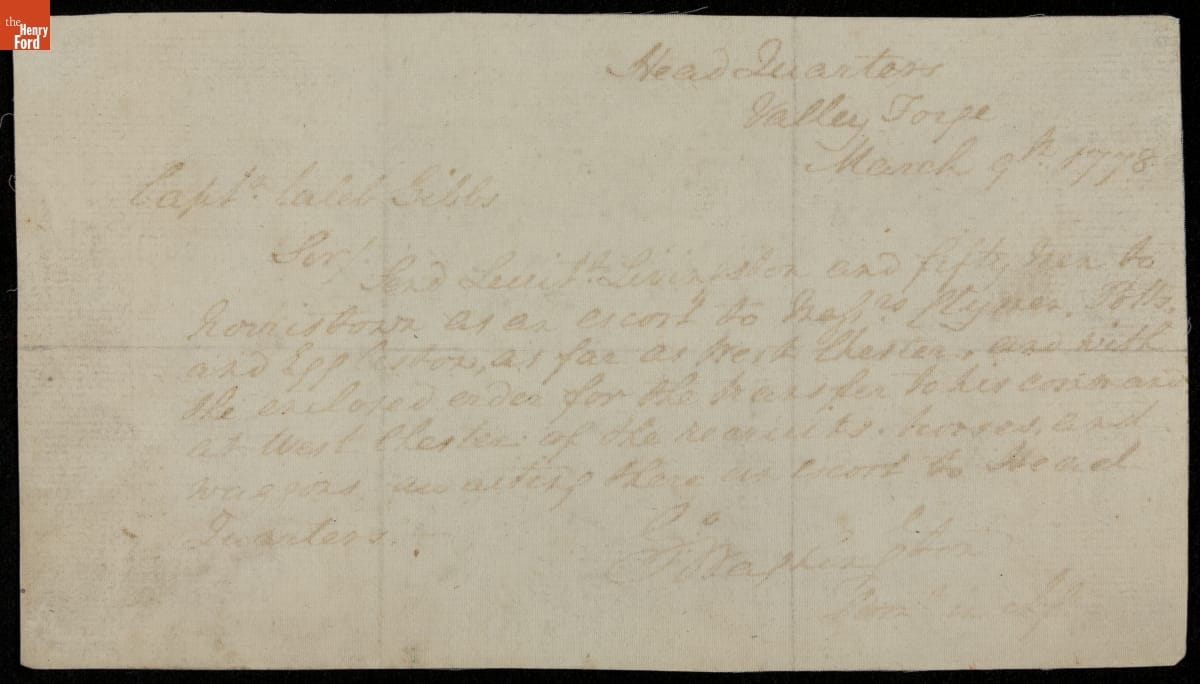 the
Henry
Ford
Head Quarters
Valley Forge
March 9th 1778
Captn Caleb Gibbs
Sir!
Send Lieutt Livingston and fifty men to
Norristown as an escort to Messrs Clymer, Potts,
and Eggleston, as far as West Chester, and with
the enclosed order for the transfer to his command
at West Chester of the recruits. horses, and
waggons awaiting there an escort to Head
Quarters.
Go Washington